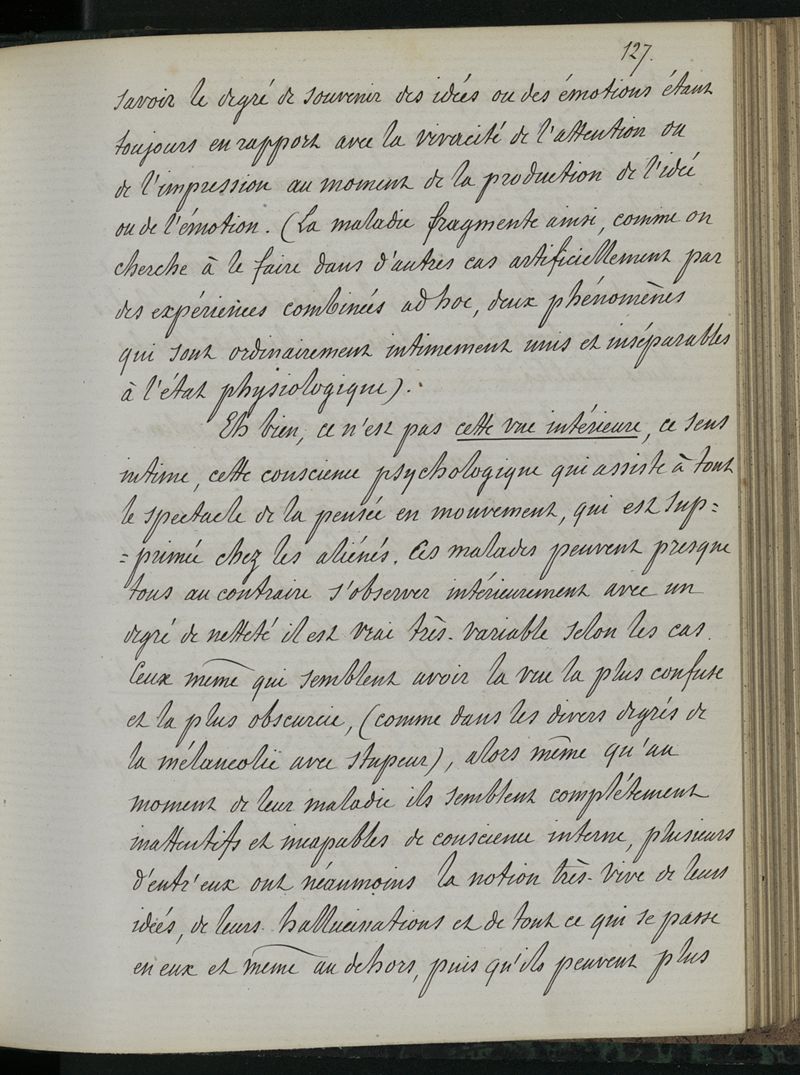 127.
savoir le degré de souvenir des idées ou des émotions étant
toujours en rapport avec la vivacité de l'attention ou
de l'impression au moment de la production de l'idée
ou de l'émotion. (La maladie fragmente ainsi, comme on
cherche à le faire dans d'autres cas artificiellement par
des expériences combinées ad hoc, deux phénomènes
qui sont ordinairement intimement unis et inséparables
à l'état physiologique).
Eh bien, ce n'est pas cette vue intérieure, ce sens
intime, cette conscience psychologique qui assiste à tout
le spectacle de la pensée en mouvement, qui est sup=
=primée chez les aliénés. Ces malades peuvent presque
tous au contraire s'observer intérieurement avec un
degré de netteté il est vrai très-variable selon les cas.
Ceux même qui semblent avoir la vue la plus confuse
et la plus obscurcie, (comme dans les divers degrés de
la mélancolie avec stupeur), alors même qu'au
moment de leur maladie ils semblent complétement
inattentifs et incapables de conscience interne, plusieurs
d'entr'eux ont néanmoins la notion très-vive de leurs
idées, de leurs hallucinations et de tout ce qui se passe
en eux et même au dehors, puis qu'ils peuvent plus